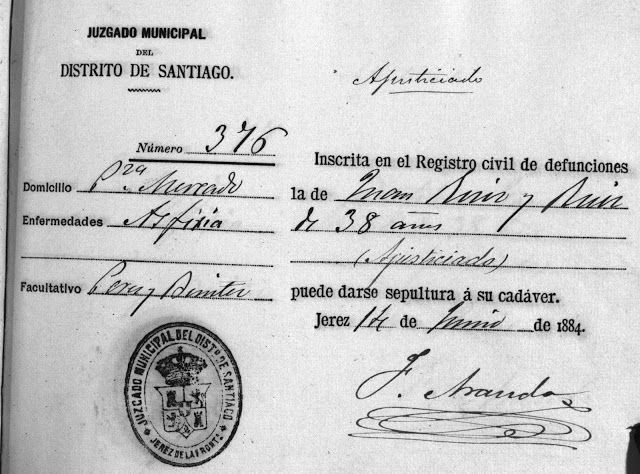 JUZGADO MUNICIPAL
DEL
DISTRITO DE SANTIAGO.
Ajusticiado
Número 376
Domicilio Pza Mercado
Enfermedades Asfixia
Facultativo Perez Benitez
Inscrita en el Registro civil de defunciones
la de Juan Ruiz y Ruiz
de 38 años
(Ajusticiado)
puede darse sepultura á su cadáver.
Jerez 14 de Junio de 1884.
F. Aranda
JUZGADO MUNICIPAL DEL DISTº DE SANTIAGO
JEREZ DE LA FRONTª